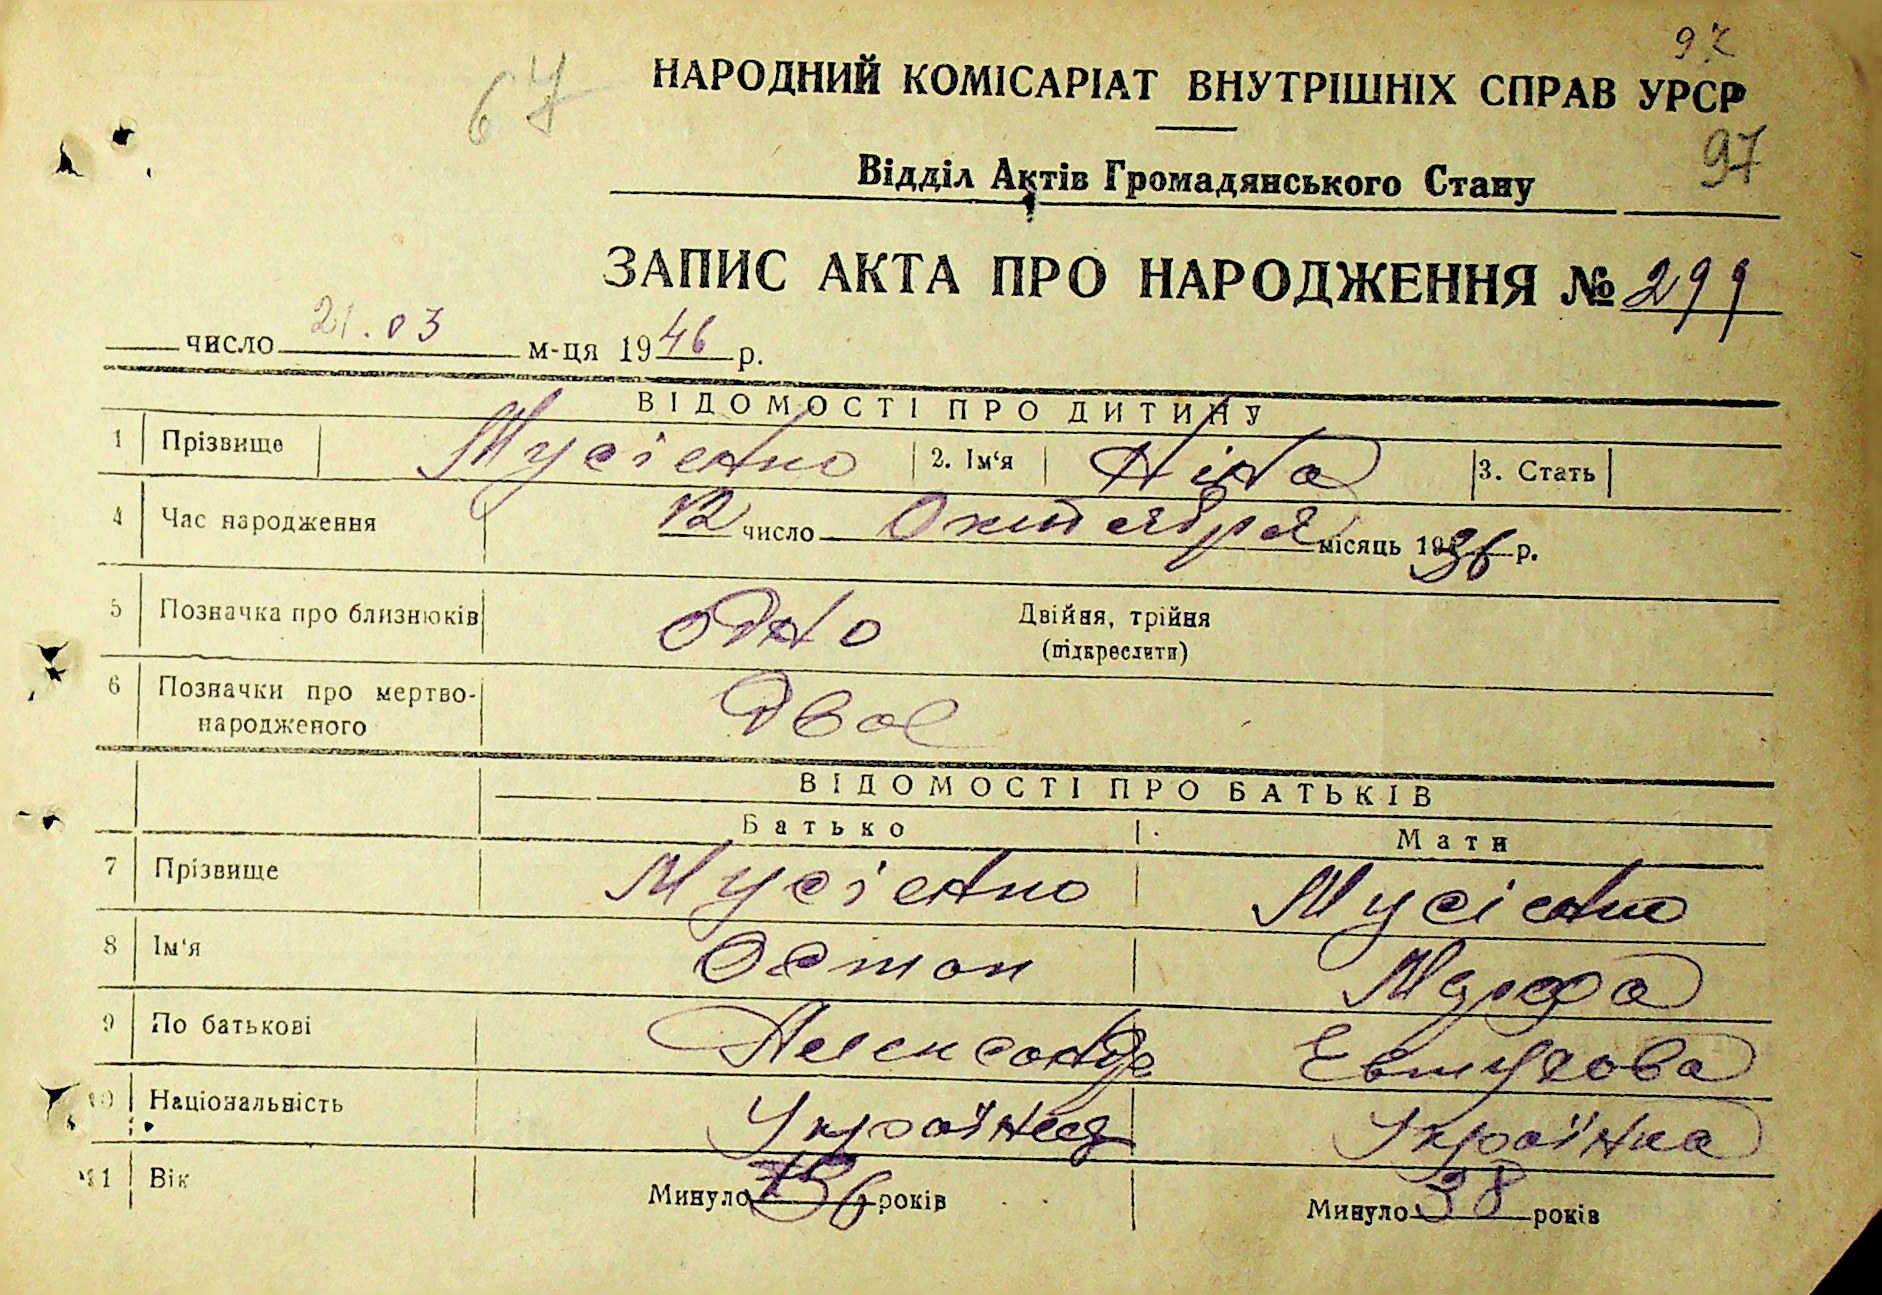 97
НАРОДНИЙ КОМІСАРІАТ ВНУТРІШНІХ СПРАВ УРСР
67
97
Відділ Актів Громадянського Стану
ЗАПИС АКТА ПРО НАРОДЖЕННЯ № 299
число 21.03 м-ця 1946 р.
ВІДОМОСТІ ПРО ДИТИНУ
1 Прізвище Мусієнко 2. Ім'я Ніна 3. Стать
4 Час народження 12 число Октября місяць 1936 р.
5 Позначка про близнюків одно Двійня, трійня
(підкреслити)
6 Позначки про мертво-
народженого Двое
ВІДОМОСТІ ПРО БАТЬКІВ
Батько Мати
7 Прізвище Мусієнко Мусієнко
8 Ім'я Остап Марфа
9 По батькові Александр Евтухова
10 Національність Українец Українка
11 Вік Минуло 36 років Минуло 38 років